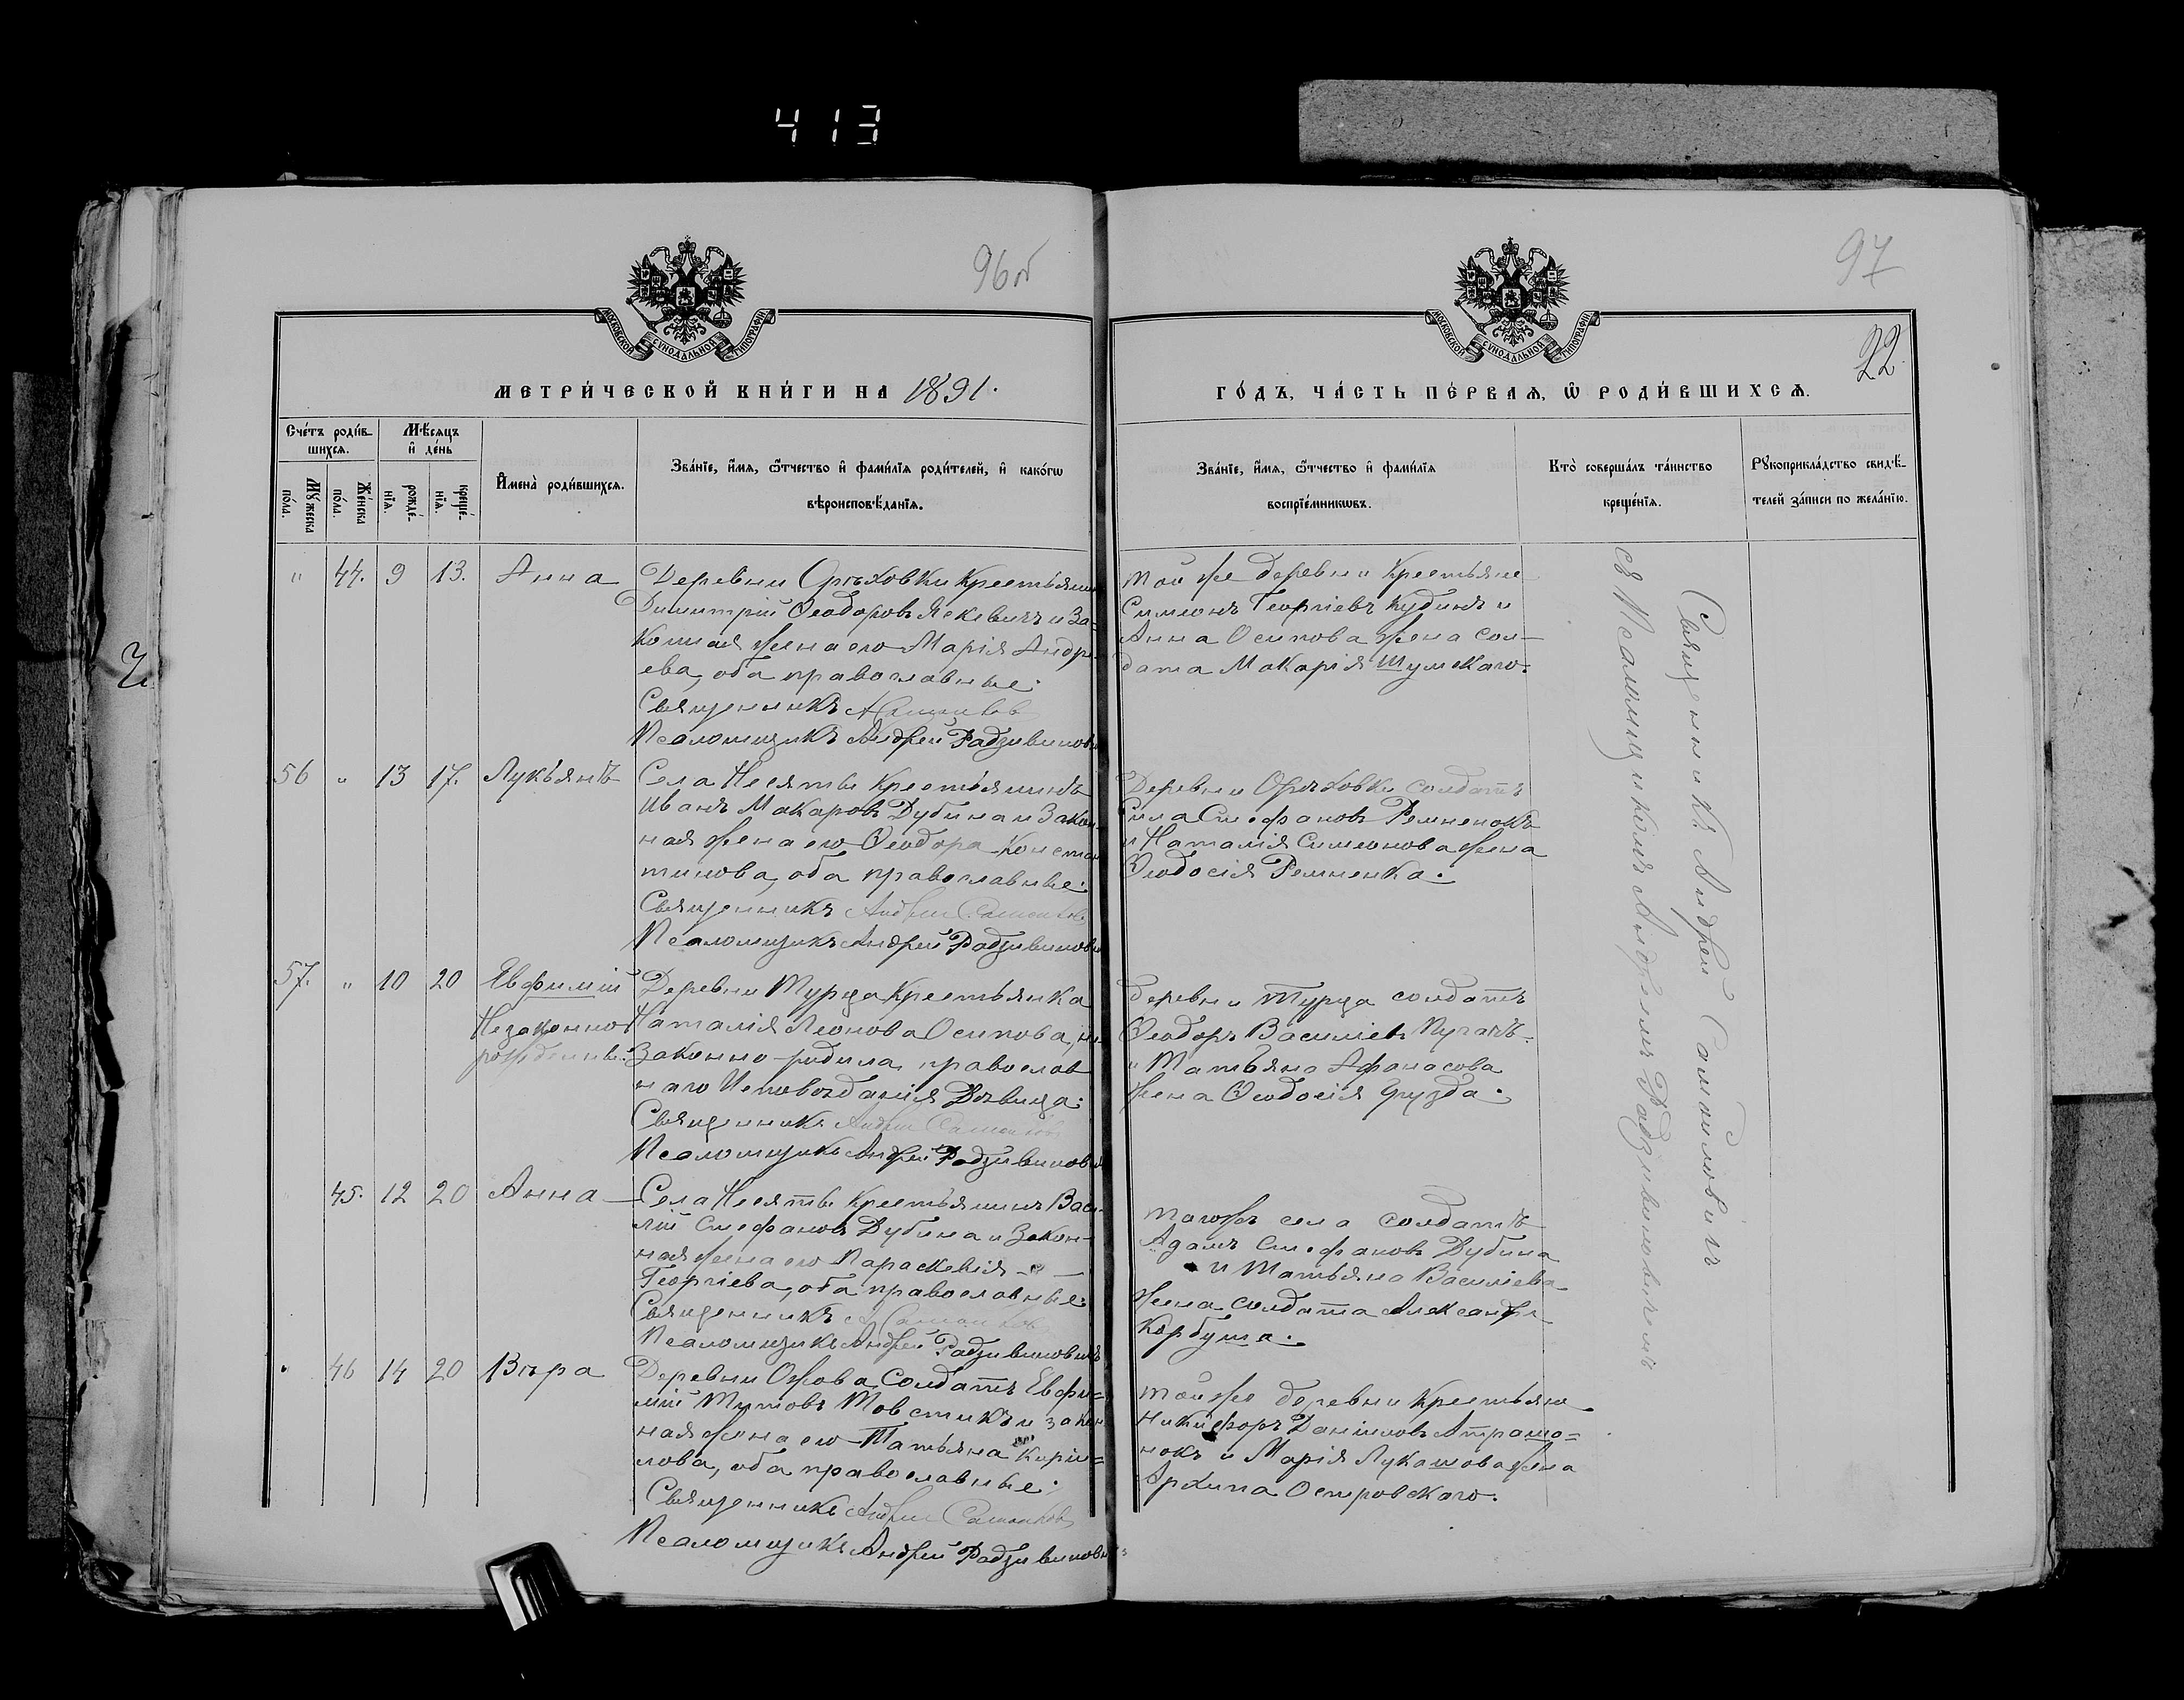 413
96об
97
22.
МОСКОВСКОЙ СѴНОДАЛЬНОЙ ТИПОГРАФІИ
МОСКОВСКОЙ СѴНОДАЛЬНОЙ ТИПОГРАФІИ
МЕТРИ́ЧЕСКОЙ КНИ́ГИ НА 1891.
ГО́ДЪ, ЧА́СТЬ ПЕ́РВАѦ, Ѡ҆ РОДИ́ВШИХСѦ.
Сче́тъ роди́вшихсѧ.
Мѣ́сѧцъ и҆ де́нь
Мꙋ́жеска по́ла.
Же́нска по́ла.
рожде́нїѧ.
креще́нїѧ.
И҆мена̀ роди́вшихсѧ.
Зва́нїе, и҆́мѧ, ѻ҆́тчество и҆ фами́лїѧ роди́телей, и҆ како́гѡ
вѣроисповѣ́данїѧ.
Зва́нїе, и҆́мѧ, ѻ҆́тчество и҆ фами́лїѧ
воспрїе́мникѡвъ.
Кто̀ соверша́лъ та́инство
креще́нїѧ.
Рꙋкоприкла́дство свидѣ́-
телей за́писи по жела́нїю.
" 44. 9 13. Анна
Деревни Орѣховки Крестьянин
Димитрій Ѳеодоровъ и За=
конная жена его Марія Андре
ева, оба православные:
Священникъ
Псаломщикъ Андрей Радзивинови
той же деревни Крестьяне
Симеонъ Георгіевъ Кудинъ и
Анна Осипова жена сол-
дата Макарія Шумскаго.
56 " 13 17. Лукьянъ
Села Несятвы Крестьянинъ
Иванъ Макаровъ Дубина и Закон
ная жена его Ѳеодора Конста
тинова, оба православные:
Священникъ Андрей
Псаломщикъ Андрей Радзивинови
Деревни Орѣховки солдатъ
Сила Стефановъ Ремненокъ
и Наталія Симеонова жена
Ѳеодосія Ремненка.
57. " 10 20 Евфимій
Незаконно
рожденны.
Деревни Турца Крестьянка
Наталія Леонова Осипова, не-
Законно-родила, православ
наго Исповѣданія Дѣвица:
Священникъ Андрей
Псаломщикъ Андрей Радзивинови
деревни Турца солдатъ
Ѳеодоръ Василіевъ Пугачъ
и Татьяна Афанасова
жена Ѳеодосія Грузда.
45. 12 20 Анна
Села Несятвы Крестьянинъ Васи-
лій Стефановъ Дубина и Закон-
ная жена его Параскевія
Георгіева, оба православные:
Священникъ
Псаломщикъ Андрей Радзивиновичъ
тогожъ села солдатъ
Адамъ Стефановъ Дубина
и Татьяна Василіева
жена солдата Александра
Корбута.
46 14 20 Вѣра
Деревни Ожова Солдатъ Евфи=
мій Титовъ Товстикъ и закон
ная жена его Татьяна Кирил=
лова, оба православные:
Священникъ Андрей
Псаломщикъ Андрей Радзивинови
той же деревни Крестьяне
Никифоръ Даніиловъ Атрашо=
нокъ и Марія Лукашова жена
Архипа Островскаго.
Священникъ Андрей
съ Псаломщикомъ Андреемъ Радзивиновичемъ